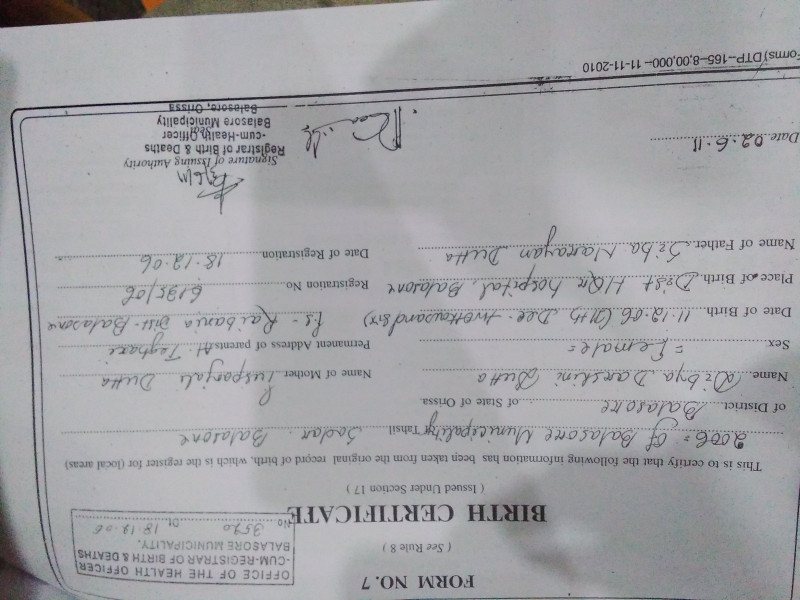 FORM NO. 7
( See Rule 8 )
OFFICE OF THE HEALTH OFFICER
-CUM-REGISTRAR OF BIRTH & DEATHS
BALASORE MUNICIPALITY.
No. 3520 Dt. 18.12.06
BIRTH CERTIFICATE
( Issued Under Section 17 )
This is to certify that the following information has been taken from the original record of birth, which is the register for (local areas)
2006 = of Balasore Municipality Tahsil Sadar. Balasore
of District Balasore of State of Orissa
Name Dibya Darshini Dutta Name of Mother Puspanjali Dutta
Sex = Female = Permanent Address of parents At. Teghari
Date of Birth 11.12.06 (11th Dec. twothousand six) P.S - Raibania Dist - Balasore
Place of Birth Dist HQr hospital, Balasore Registration No 6195/06
Name of Father Siba Narayan Dutta Date of Registration 18.12.06
Date 02.6.11
Signature of Issuing Authority
Registrar of Birth & Deaths
-cum-Health Officer
Balasore Municipality
Balasore, Orissa
Forms) DTP-165-8,00,000-11-11-2010